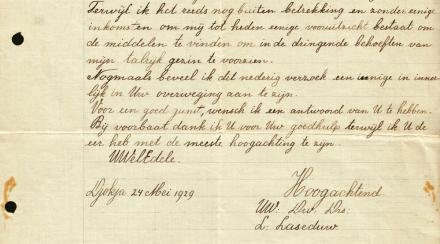 Terwijl ik het reeds nog buiten betrekking en zonder eenige
inkomsten om mij tot heden eenige vooruitzicht bestaat om
de middelen te vinden om in de dringende behoeften van
mijn talrijk gezin te voorzien.
Nogmaals beveel ik dit nederig verzoek een innige in inner
lijk in Uw overweging aan te zijn.
Voor een goed punt, wensch ik een antwoord van U te hebben.
Bij voorbaat dank ik U voor Uwe goedhulp terwijl ik U de
eer heb met de meeste hoogachting te zijn.
UWelEdele.
Djokja 24 Mei 1929
Hoogachtend
UW: Dw Drs:
L. Laseduw